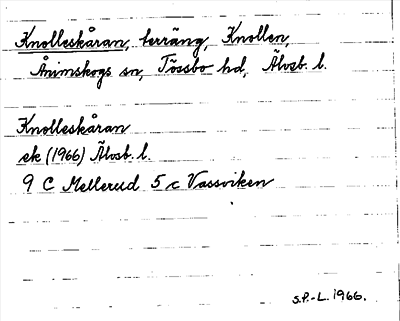 Knolleskåran, terräng, Knollen,
Ånimskogs sn, Tössbo hd, Älvsb. l.
Knolleskåran
ek (1966) Älvsb. l.
9 C Mellerud 5 c Vassviken
S.P.-L. 1966.